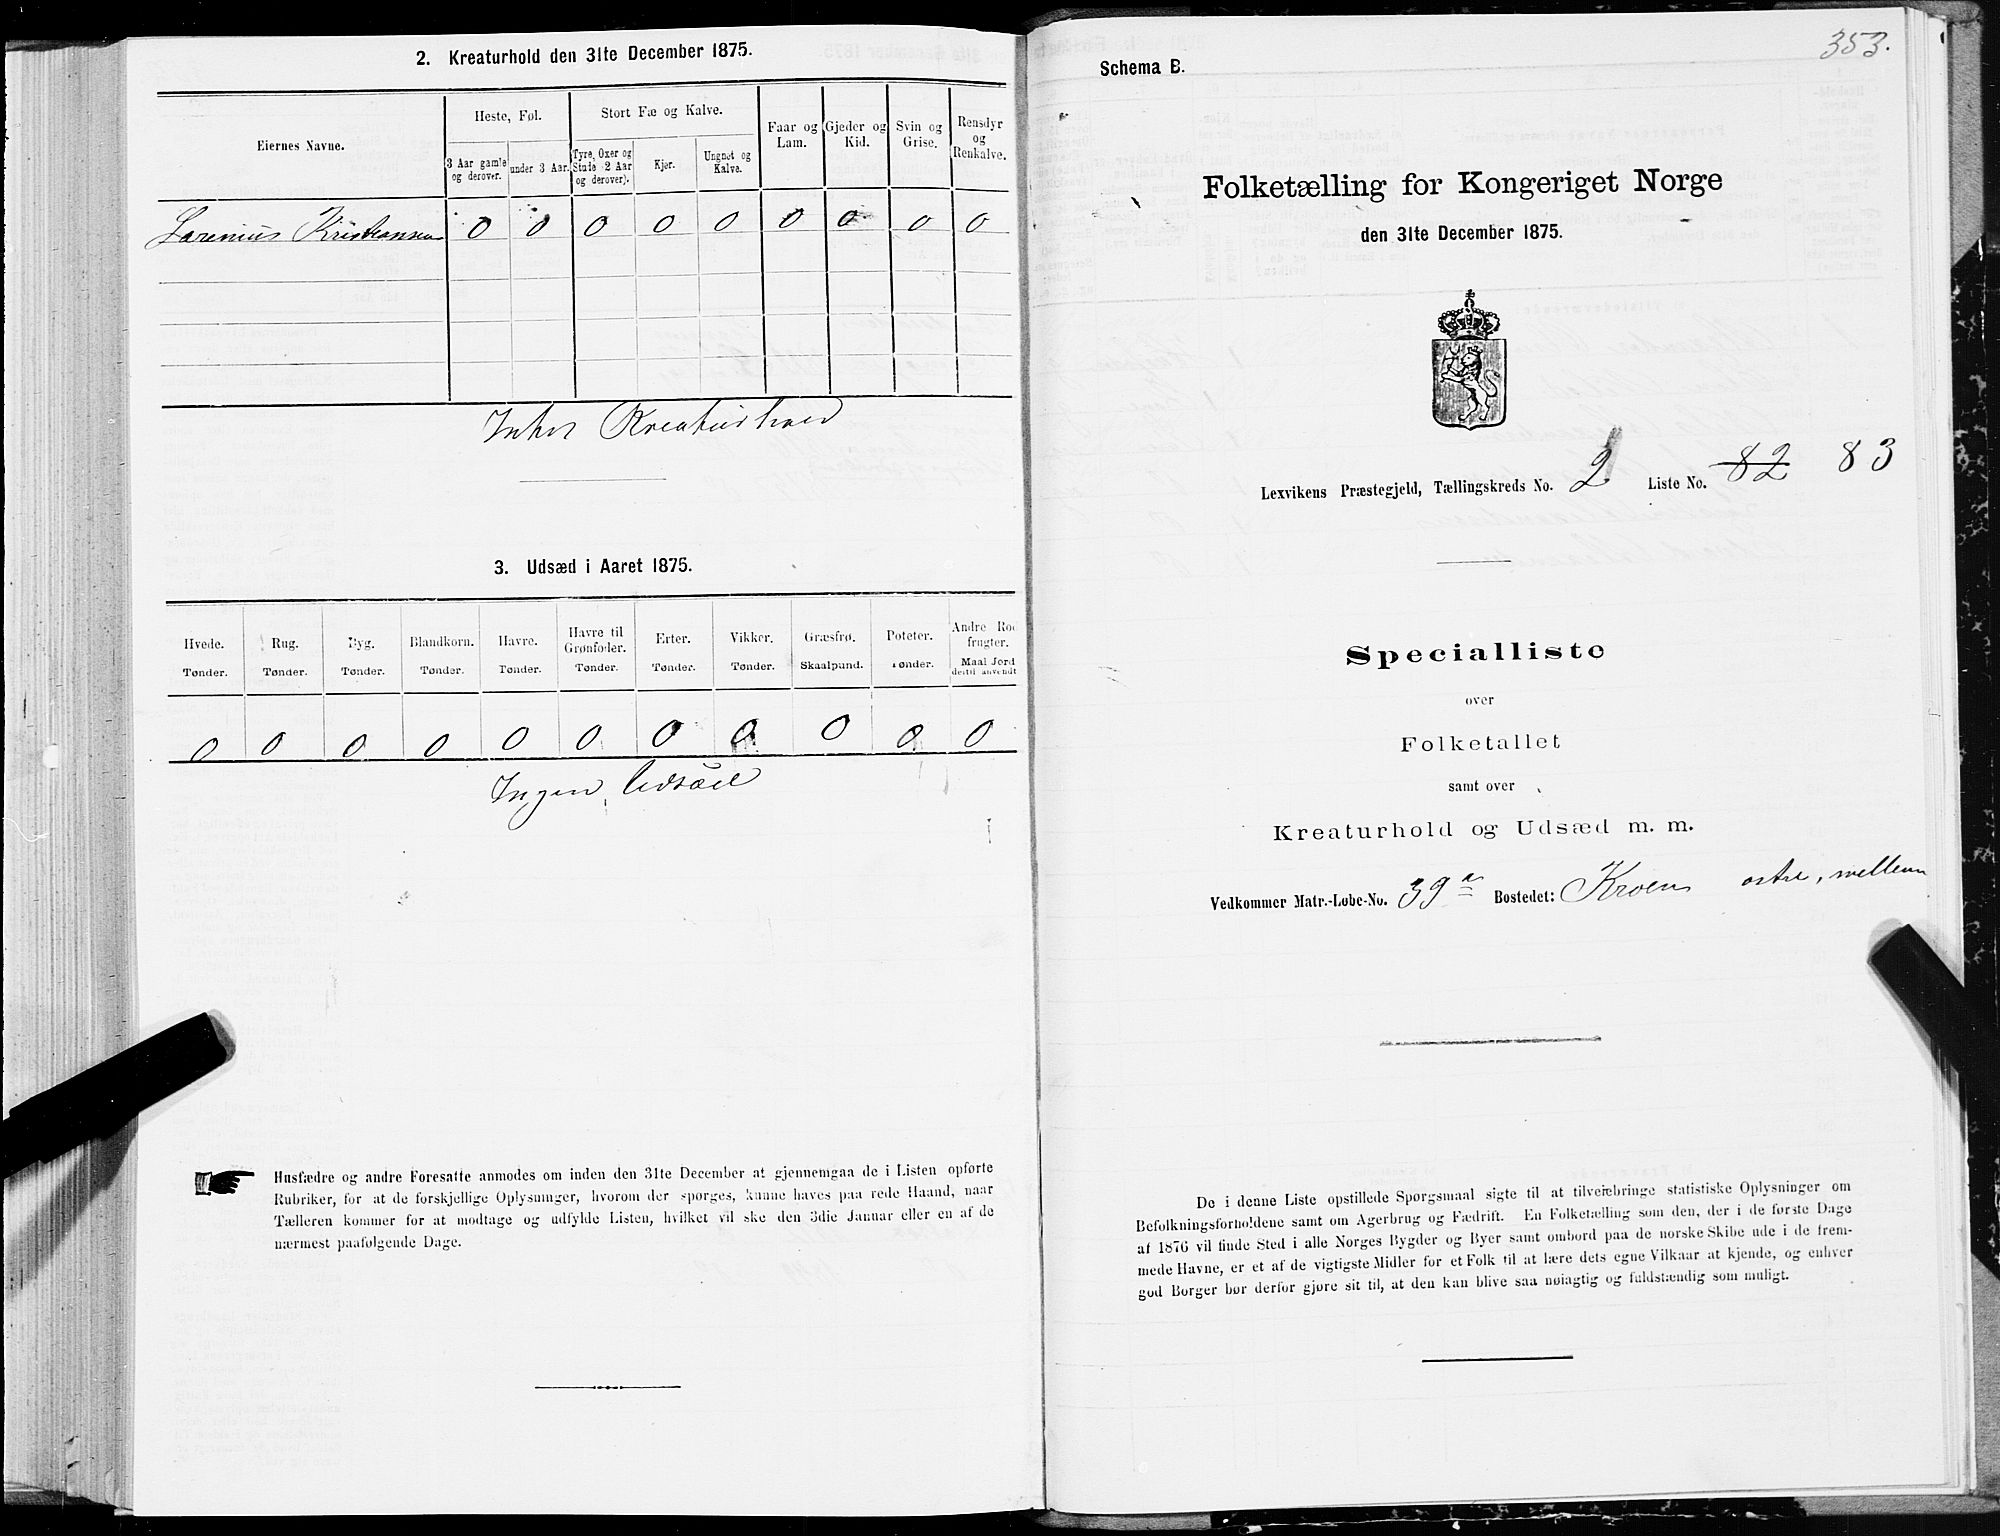 2. Kreaturhold den 31te December 1875.
Eiernes Navne.
Heste, Føl.
Stort Fæ og Kalve.
Faar og Lam.
Gjeder og Kid.
Svin og Grise.
Rensdyr og Renkalve.
3 Aar gamle og derover.
under 3 Aar.
Tyre, Oxer og Stude (2 Aar og derover).
Kjør.
Ungnøt og Kalve.
Lorenius Kristiansen 0 0 0 0 0 0 0 0 0
Intet Kreaturhold
3. Udsæd i Aaret 1875.
Hvede. Rug. Byg. Blandkorn. Havre. Havre til Grønfoder. Erter. Vikker. Græsfrø. Poteter. Andre Rodfrugter.
Tønder. Tønder. Tønder. Tønder. Tønder. Tønder. Tønder. Tønder. Skaalpund. Tønder. Maal Jord dertil anvendt
0 0 0 0 0 0 0 0 0 0 0
Ingen Udsæd
Husfædre og andre Foresatte anmodes om inden den 31te December at gjennemgaa de i Listen opførte
Rubriker, for at de forskjellige Oplysninger, hvorom der spørges, kunne haves paa rede Haand, naar
Tælleren kommer for at modtage og udfylde Listen, hvilket vil ske den 3die Januar eller en af de
nærmest paafølgende Dage.
353.
Schema B.
Folketælling for Kongeriget Norge
den 31te December 1875.
Lexvikens Præstegjeld, Tællingskreds No. 2 Liste No. 82 83
Specialliste
over
Folketallet
samt over
Kreaturhold og Udsæd m. m.
Vedkommer Matr.-Løbe-No. 39 a Bostedet: Kroen østre, mellem
De i denne Liste opstillede Spørgsmaal sigte til at tilveiebringe statistiske Oplysninger om
Befolkningsforholdene samt om Agerbrug og Fædrift. En Folketælling som den, der i de første Dage
af 1876 vil finde Sted i alle Norges Bygder og Byer samt ombord paa de norske Skibe ude i de frem-
mede Havne, er et af de vigtigste Midler for et Folk til at lære dets egne Vilkaar at kjende, og enhver
god Borger bør derfor gjøre sit til, at den kan blive saa nøiagtig og fuldstændig som muligt.